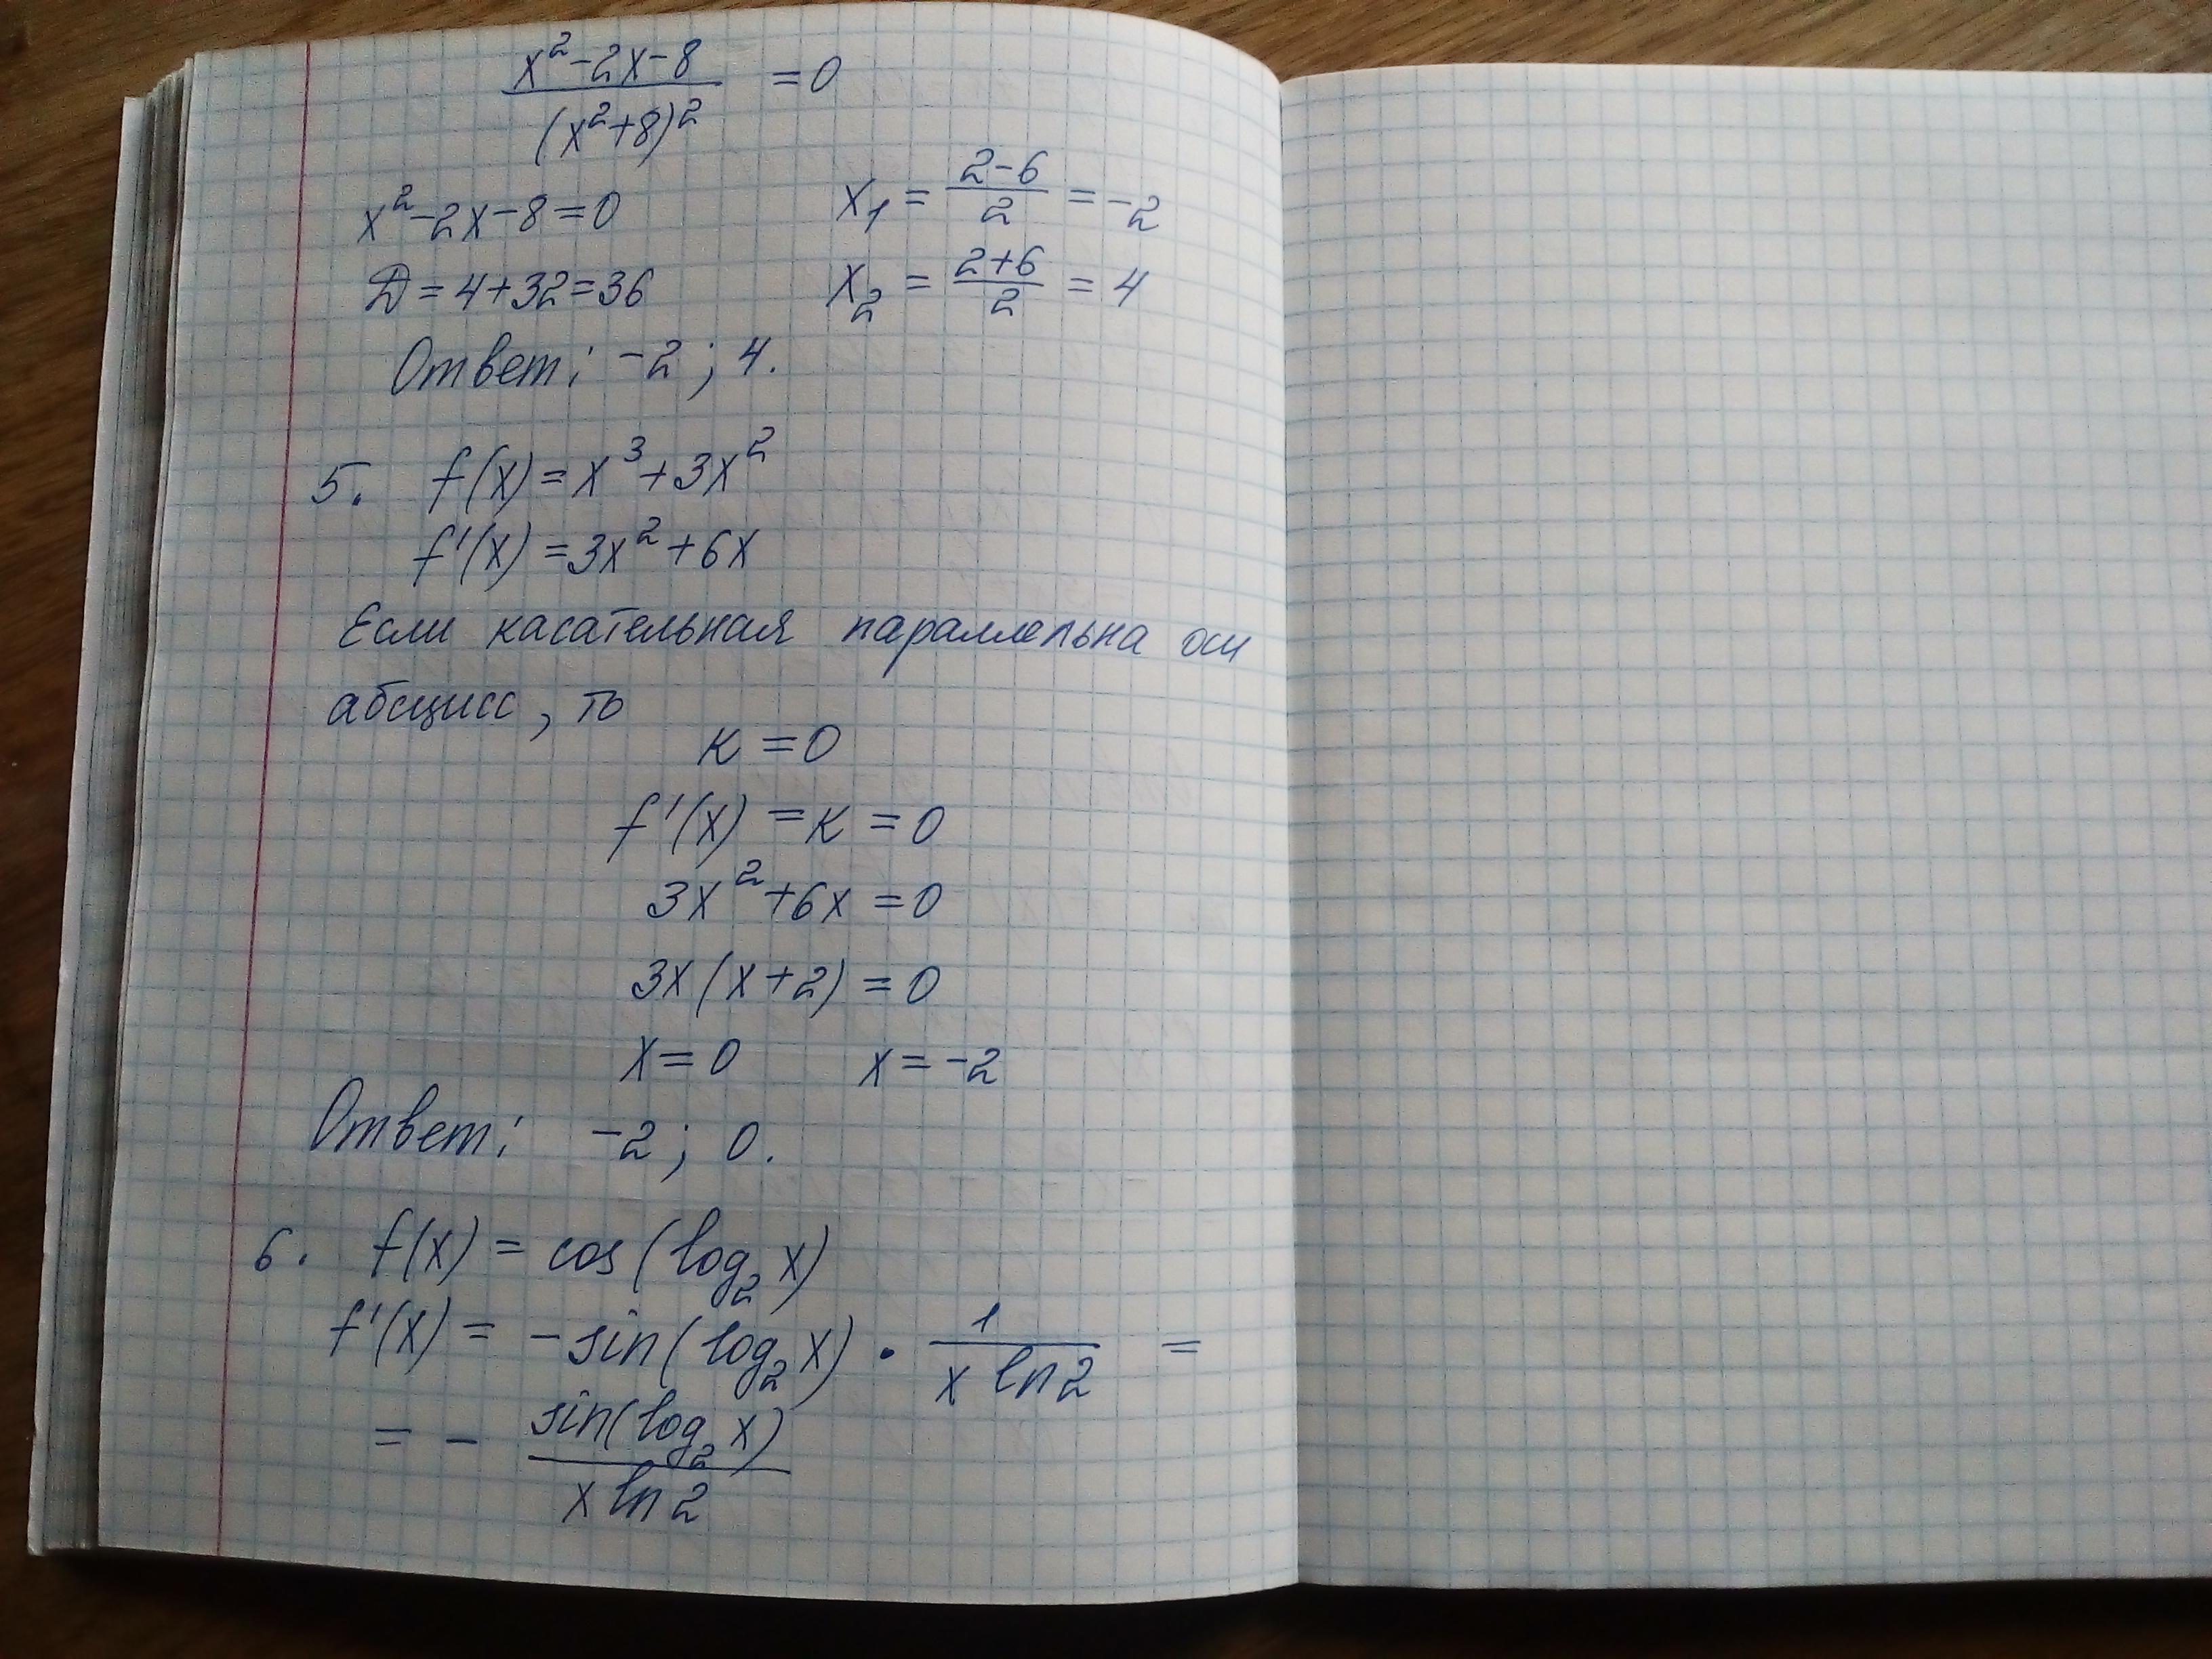 x²-2x-8 / (x²+8)² = 0
x²-2x-8=0
x₁ = (2-6)/2 = -2
D = 4+32=36
x₂ = (2+6)/2 = 4
Ответ: -2; 4.
5. f(x) = x³+3x²
f'(x) = 3x²+6x
Если касательная параллельна оси
абсцисс, то
к = 0
f'(x) = к = 0
3x²+6x = 0
3x(x+2) = 0
x=0 x=-2
Ответ: -2; 0.
6. f(x) = cos(log₂ x)
f'(x) = -sin(log₂ x) · 1/(x ln 2) =
= - sin(log₂ x) / (x ln 2)